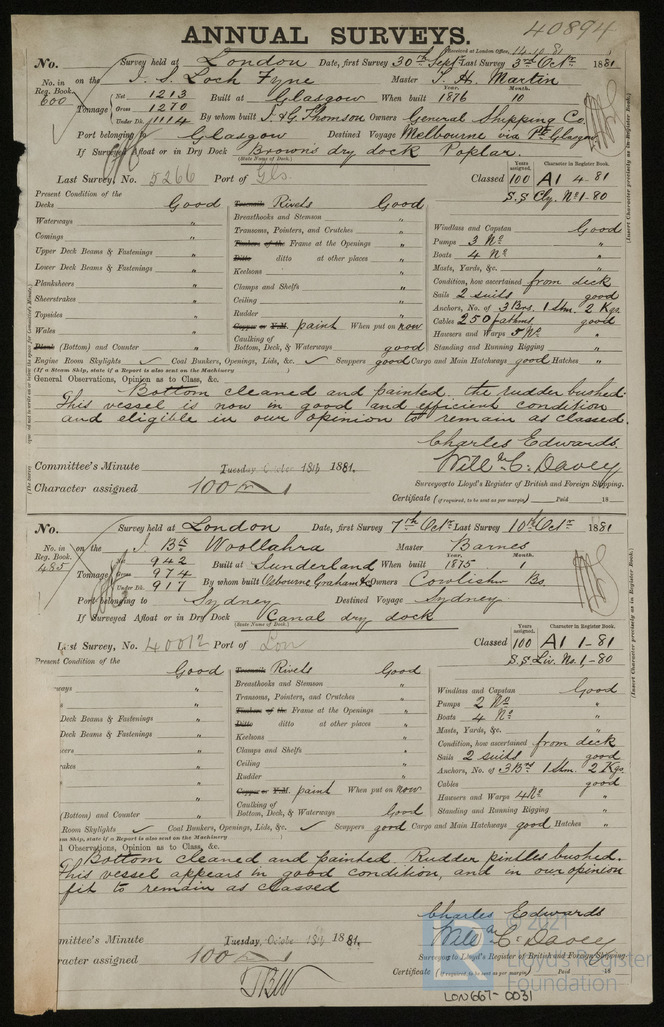 40894
ANNUAL SURVEYS.
Received at London Office, 14.10.81
No. Survey held at London Date, first Survey 30th Septr Last Survey 3rd Octr 1881
No. in Reg. Book. 600 on the I. S. Loch Fyne Master T. H. Martin
Tonnage Net 1213 Gross 1270 Under Dk. 1114 Built at Glasgow When built Year. 1876 Month. 10
By whom built J. & G. Thomson Owners General Shipping Co.
Port belonging to Glasgow Destined Voyage Melbourne via Pt Glasgow
If Surveyed Afloat or in Dry Dock Brown's dry dock Poplar.
(State Name of Dock.)
Last Survey, No. 5266 Port of Gls. Classed Years assigned. 100 Character in Register Book. A1 4-81
S.S Cly. No 1-80
(Insert Character precisely as in Register Book.)
Present Condition of the
Decks Good
Waterways "
Comings "
Upper Deck Beams & Fastenings "
Lower Deck Beams & Fastenings "
Planksheers "
Sheerstrakes "
Topsides "
Wales "
(Bottom) and Counter "
Treenails Rivets Good
Breasthooks and Stemson "
Transoms, Pointers, and Crutches "
Timbers of the Frame at the Openings "
Ditto ditto at other places "
Keelsons "
Clamps and Shelfs "
Ceiling "
Rudder "
Copper or Y.M. paint When put on now
Caulking of Bottom, Deck, & Waterways good
Windlass and Capstan Good
Pumps 3 No "
Boats 4 No "
Masts, Yards, &c. "
Condition, how ascertained from deck
Sails 2 suits good
Anchors, No. of 3 Brs. 1 Stm. 2 Kgs.
Cables 250 fathms good
Hawsers and Warps 5 No "
Standing and Running Rigging "
Engine Room Skylights ✓ Coal Bunkers, Openings, Lids, &c. ✓ Scuppers good Cargo and Main Hatchways good Hatches "
(If a Steam Ship, state if a Report is also sent on the Machinery )
General Observations, Opinion as to Class, &c.
Bottom cleaned and painted. the rudder bushed.
This vessel is now in good and efficient condition
and eligible in our opinion to remain as classed.
Charles Edwards
Willm C. Davey
Surveyors to Lloyd's Register of British and Foreign Shipping.
Committee's Minute Tuesday October 18th 1881.
Character assigned 100 A 1
Certificate (if required, to be sent as per margin) Paid 18
No. Survey held at London Date, first Survey 7th Octr Last Survey 10th Octr 1881
No. in Reg. Book. 485 on the I. Bk Woollahra Master Barnes
Tonnage Net 942 Gross 974 Under Dk. 917 Built at Sunderland When built Year. 1875 Month. 1
By whom built Osbourne Graham & Co Owners Cowlishw Bs
Port belonging to Sydney Destined Voyage Sydney
If Surveyed Afloat or in Dry Dock Canal dry dock
(State Name of Dock.)
Last Survey, No. 40012 Port of Lon Classed Years assigned. 100 Character in Register Book. A1 1-81
S.S Liv. No. 1-80
(Insert Character precisely as in Register Book.)
Present Condition of the
Good
ways "
Deck Beams & Fastenings "
Deck Beams & Fastenings "
eers "
rakes "
(Bottom) and Counter "
Treenails Rivets Good
Breasthooks and Stemson "
Transoms, Pointers, and Crutches "
Timbers of the Frame at the Openings "
Ditto ditto at other places "
Keelsons "
Clamps and Shelfs "
Ceiling "
Rudder "
Copper or Y.M. paint When put on now
Caulking of Bottom, Deck, & Waterways Good
Windlass and Capstan Good
Pumps 2 No "
Boats 4 No "
Masts, Yards, &c. "
Condition, how ascertained from deck
Sails 2 suits good
Anchors, No. of 3 Brs 1 Stm. 2 Kgs.
Cables good
Hawsers and Warps 4 No "
Standing and Running Rigging "
Room Skylights ✓ Coal Bunkers, Openings, Lids, &c. ✓ Scuppers good Cargo and Main Hatchways good Hatches "
m Ship, state if a Report is also sent on the Machinery )
l Observations, Opinion as to Class, &c.
Bottom cleaned and painted. Rudder pintles bushed.
This vessel appears in good condition, and in our opinion
fit to remain as classed
Charles Edwards
Willm C. Davey
Surveyors to Lloyd's Register of British and Foreign Shipping.
mmittee's Minute Tuesday, October 18th 1881.
racter assigned 100 A 1
Certificate (if required, to be sent as per margin) Paid 18
TBW
© 2021
Lloyd's Register
Foundation
LON667-0031